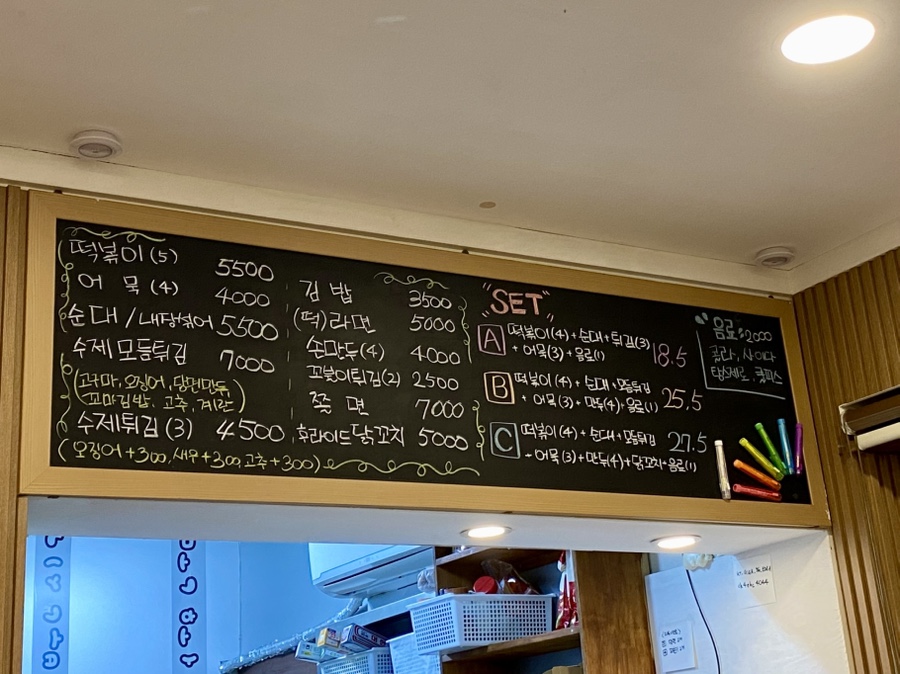 떡볶이 (5) 5500
어묵 (4) 4000
순대 / 내장섞어 5500
수제모듬튀김 7000
(고구마, 오징어, 당면만두
꼬마김밥, 고추, 계란)
수제튀김 (3) 4500
(오징어 +300, 새우 +300, 고추 +300)
김밥 3500
(떡)라면 5000
손만두(4) 4000
꼬불이튀김(2) 2500
쫄면 7000
후라이드닭꼬치 5000
"SET"
A 떡볶이(4) + 순대 + 튀김(3)
+ 어묵(3) + 음료(1) 18.5
B 떡볶이(4) + 순대 + 모듬튀김
+ 어묵(3) + 만두(4) + 음료(1) 25.5
C 떡볶이(4) + 순대 + 모듬튀김 27.5
+ 어묵(3) + 만두(4) + 닭꼬치 + 음료(1)
음료 : 2000
콜라, 사이다
탐스제로, 쿨피스